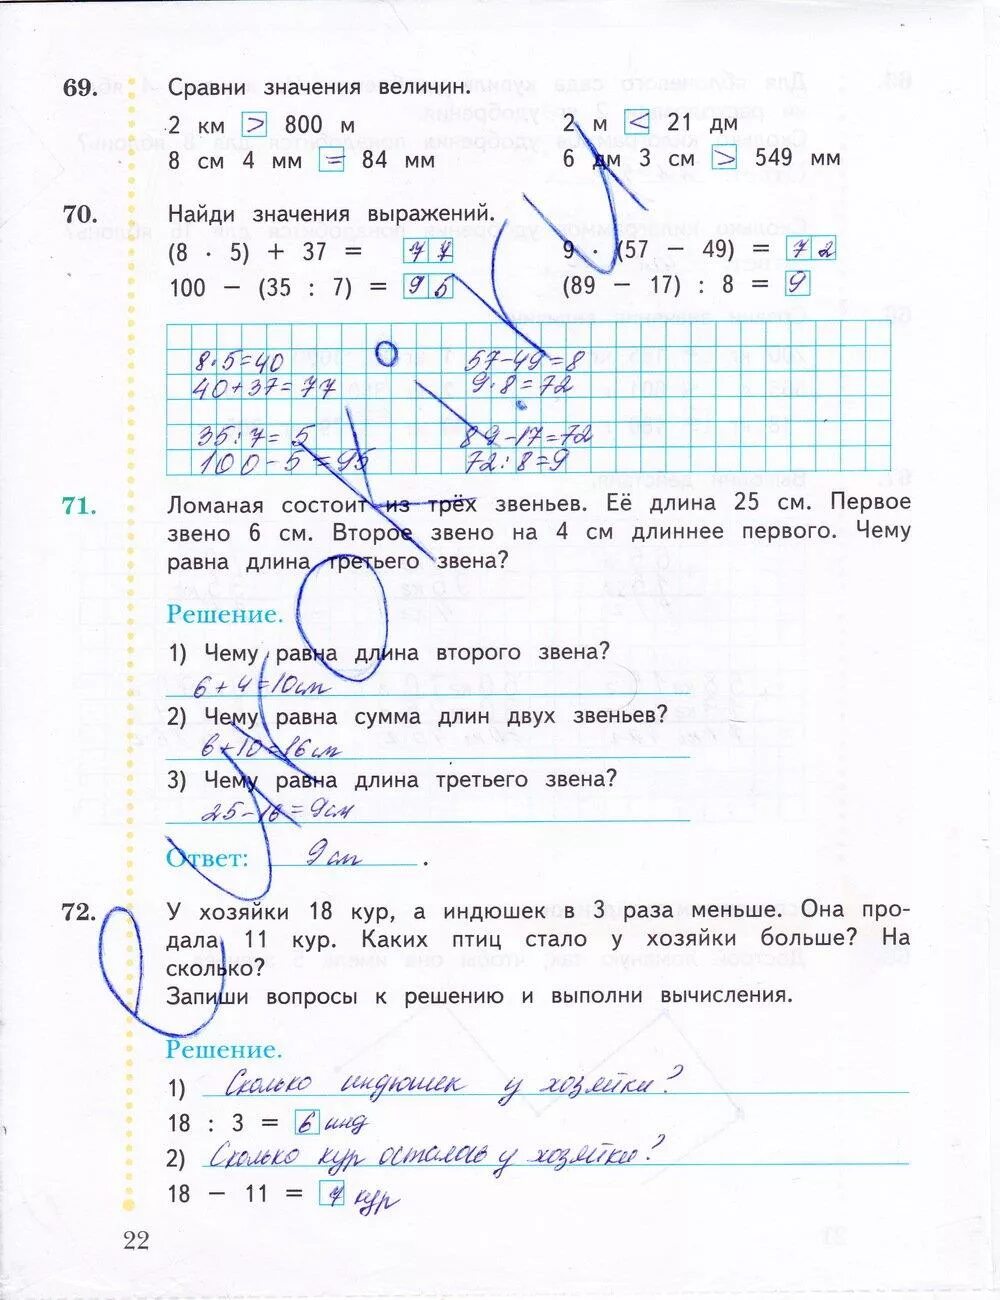 69. Сравни значения величин.
2 км > 800 м 2 м < 21 дм
8 см 4 мм = 84 мм 6 дм 3 см > 549 мм
70. Найди значения выражений.
(8 · 5) + 37 = 77 9 · (57 − 49) = 72
100 − (35 : 7) = 95 (89 − 17) : 8 = 9
8·5=40 57-49=8
40+37=77 9·8=72
35:7=5 89-17=72
100-5=95 72:8=9
71. Ломаная состоит из трёх звеньев. Её длина 25 см. Первое
звено 6 см. Второе звено на 4 см длиннее первого. Чему
равна длина третьего звена?
Решение.
1) Чему равна длина второго звена?
6+4=10см
2) Чему равна сумма длин двух звеньев?
6+10=16см
3) Чему равна длина третьего звена?
25-16=9см
Ответ: 9см.
72. У хозяйки 18 кур, а индюшек в 3 раза меньше. Она про-
дала 11 кур. Каких птиц стало у хозяйки больше? На
сколько?
Запиши вопросы к решению и выполни вычисления.
Решение.
1) Сколько индюшек у хозяйки?
18 : 3 = 6 инд
2) Сколько кур осталось у хозяйки?
18 − 11 = 7 кур
22